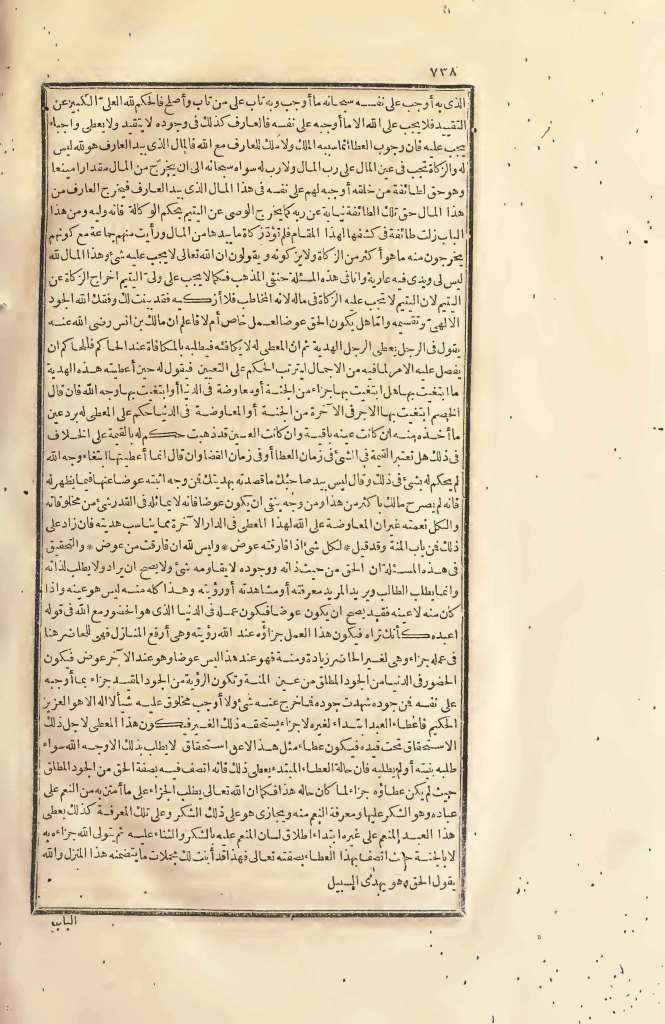 ٧٣٨
الذي به أوجب على نفسه سبحانه ما أوجب وبه تاب على من تاب وأصلح فالحكم لله العلي الكبير عن
التقييد فلا يجب على الله الا ما أوجبه على نفسه فالعارف كذلك في وجوده لا يتقيد ولا يعطى واجبا
يجب عليه فان وجوب العطا انما سببه الملك ولا ملك للعارف مع الله فالمال الذي بيد العارف هو لله ليس
له والزكاة تجب في عين المال على رب المال ولا رب له سواه سبحانه الى ان يخرج من المال مقدارا معينا
وهو حق لطائفة من خلقه أوجبه لهم على نفسه في هذا المال الذي بيد العارف فيخرج العارف من
هذا المال حق تلك الطائفة نيابة عن ربه كما يخرج الوصى عن اليتيم بحكم الوكالة فانه وليه ومن هذا
الباب زلت طائفة في كشفها لهذا المقام فلم تؤد زكاة ما بيدها من المال ورأيت منهم جماعة مع كونهم
يخرجون منه ما هو أكثر من الزكاة ولا يزكونه ويقولون ان الله تعالى لا يجب عليه شئ وهذا المال لله
ليس لى ويدى فيه عارية وانا فى هذه المسئلة حنفى المذهب فكما لا يجب على ولى اليتيم اخراج الزكاة عن
اليتيم لان اليتيم لا تجب عليه الزكاة فى ماله لانه المخاطب فلا أزكيه فقد بينت لك وفقك الله الجود
الالهى وتقسيمه واما هل يكون الحق عوضا لعمل خاص أم لا فاعلم ان مالك بن انس رضى الله عنه
يقول فى الرجل يعطى الرجل الهدية ثم ان المعطى له لا يكافئه فيطلبه بالمكافاة عند الحاكم فللحاكم ان
يفصل عليه الامر لما فيه من الاجمال ليترتب الحكم على التعيين فيقول له حين أعطيته هذه الهدية
ما ابتغيت بها هل ابتغيت بها جزاء من الجنة أو معاوضة فى الدنيا أو ابتغيت بها وجه الله فان قال
الخصم ابتغيت بها الاجر فى الآخرة من الجنة أو المعاوضة فى الدنيا حكم على المعطى له برد عين
ما أخذه منه ان كانت عينه باقية وان كانت العين قد ذهبت حكم له بالقيمة على الخلاف
فى ذلك هل تعتبر القيمة فى الشئ فى زمان العطا أو فى زمان القضا وان قال انما أعطيتها ابتغاء وجه الله
لم يحكم له بشئ فى ذلك وقال ليس بيد صاحبك ما قصدته بهديتك فمن وجه اثبته عوضا عنها فيما يظهر له
فانه لم يصرح مالك باكثر من هذا ومن وجه ينفى ان يكون عوضا فانه لا يماثله فى القدر شئ من مخلوقاته
والكل نعمته غير ان المعاوضة على الله لهذا المعطى فى الدار الآخرة مما يناسب هديته فان زاد على
ذلك فمن باب المنة وقد قيل * لكل شئ اذا فارقته عوض * وليس لله ان فارقت من عوض * والتحقيق
فى هذه المسئلة ان الحق من حيث ذاته ووجوده لا يقاومه شئ ولا يصح ان يراد ولا يطلب لذاته
وانما يطلب الطالب ويريد المريد معرفته أو مشاهدته أو رؤيته وهذا كله منه ليس هو عينه واذا
كان منه لا عينه فقد يصح ان يكون عوضا فيكون عمله فى الدنيا الذى هو الحضور مع الله فى قوله
اعبده كأنك تراه فيكون هذا العمل جزاؤه عند الله رؤيته وهى أرفع المنازل فهى للحاضر هنا
فى عمله جزاء وهى لغير الحاضر زيادة ومنة فهو عند هذا ليس عوضا وهو عند الآخر عوض فيكون
الحضور فى الدنيا من الجود المطلق من عين المنة وتكون الرؤية من الجود المقيد جزاء بما أوجبه
على نفسه فمن جوده شهدت جوده فما خرج عنه شئ ولا أوجب مخلوق عليه شيأ لا اله الا هو العزيز
الحكيم فاعطاء العبد ابتداء لغيره لا جزاء يستحقه ذلك الغير فيكون هذا المعطى لاجل ذلك
الاستحقاق تحت قيده فيكون عطاء مثل هذا لا عن استحقاق لا يطلب بذلك الا وجه الله سواء
طلبه بنيته أو لم يطلبه فان حالة العطاء المبتدء يعطى ذلك فانه اتصف فيه بصفة الحق من الجود المطلق
حيث لم يكن عطاؤه جزاء لما كان حاله هذا فكما ان الله تعالى يطلب الجزاء على ما أمتن به من النعم على
عباده وهو الشكر عليها ومعرفة النعم منه ويجازى هو على ذلك الشكر وعلى تلك المعرفة كذلك يعطى
هذا العبد المنعم على غيره ابتداء اطلاق لسان المنعم عليه بالشكر والثناء عليه ثم يتولى الله جزاءه به
لا بالجنة حيث اتصف بهذا العطاء بصفته تعالى فهذا قد أبنت لك مجملات ما يتضمنه هذا المنزل والله
يقول الحق وهو يهدى السبيل
الباب